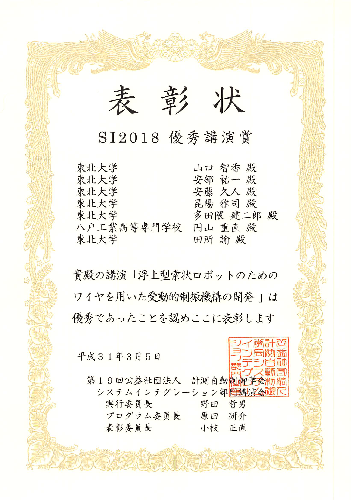 表彰状
SI2018 優秀講演賞
東北大学 山口 智香 殿
東北大学 安部 祐一 殿
東北大学 安藤 久人 殿
東北大学 昆陽 雅司 殿
東北大学 多田隈 建二郎 殿
八戸工業高等専門学校 圓山 重直 殿
東北大学 田所 諭 殿
貴殿の講演「浮上型索状ロボットのための
ワイヤを用いた受動的制振機構の開発」は
優秀であったことを認めここに表彰します
平成31年3月5日
第19回公益社団法人 計測自動制御学会
システムインテグレーション部門講演会
実行委員長 野田 哲男
プログラム委員長 原田 研介
表彰委員長 小枝 正直